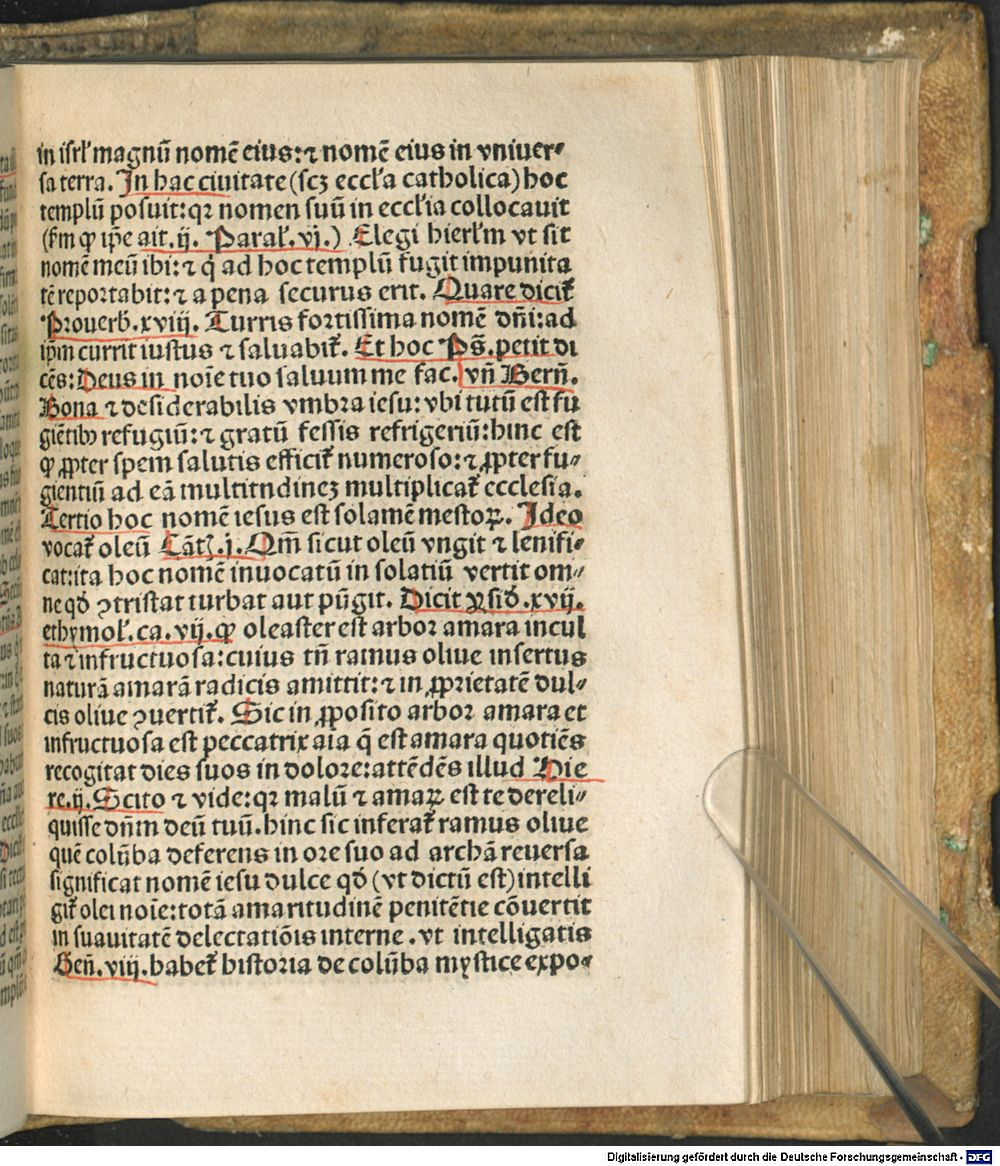 in isrl' magnū nomē eius: ⁊ nomē eius in vniuer⸗
sa terra. In hac ciuitate (scꝫ eccl'a catholica) hoc
templū posuit: qꝛ nomen suū in eccl'ia collocauit
(fm ꝙ ip̄e ait. ij. Paral'. vj.) Elegi hierl'm vt sit
nomē meū ibi: ⁊ q̇ ad hoc templū fugit impunita
tē reportabit: ⁊ a pena securus erit. Quare dicit̄
Prouerb̄. xviij. Turris fortissima nomē dn̄i: ad
ip̄m currit iustus ⁊ saluabit̄. Et hoc Ps̄. petit di
cēs: Deus in noīe tuo saluum me fac. vn̄ Bern̄.
Bona ⁊ desiderabilis vmbra iesu: vbi tutū est fu
giētibꝰ refugiū: ⁊ gratū fessis refrigeriū: hinc est
ꝙ ꝓpter spem salutis efficit̄ numeroso: ⁊ ꝓpter fu⸗
gientiū ad eā multitndineꝫ multiplicat̄ ecclesia.
Tertio hoc nomē iesus est solamē mestoꝝ. Ideo
vocat̄ oleū Cāt̄. j. Qm̄ sicut oleū vngit ⁊ lenifi⸗
cat: ita hoc nomē inuocatū in solatiū vertit om⸗
ne qd̄ ꝯtristat turbat aut pūgit. Dicit ysid̄. xvij.
ethymol'. ca. vij. ꝙ oleaster est arbor amara incul
ta ⁊ infructuosa: cuius tn̄ ramus oliue insertus
naturā amarā radicis amittit: ⁊ in ꝓprietatē dul⸗
cis oliue ꝯuertit̄. Sic in ꝓposito arbor amara et
infructuosa est peccatrix aīa q̄ est amara quotiēs
recogitat dies suos in dolore: attēdēs illud Hie
re. ij. Scito ⁊ vide: qꝛ malū ⁊ amaꝝ est te dereli⸗
quisse dn̄m deū tuū. hinc sic inferat̄ ramus oliue
quē colūba deferens in ore suo ad archā reuersa
significat nomē iesu dulce qd̄ (vt dictū est) intelli
git̄ olei noīe: totā amaritudinē penitētie cōuertit
in suauitatē delectatiōis interne. vt intelligatis
Gen̄. viij. habet̄ historia de colūba mystice expo⸗
Digitalisierung gefördert durch die Deutsche Forschungsgemeinschaft - DFG